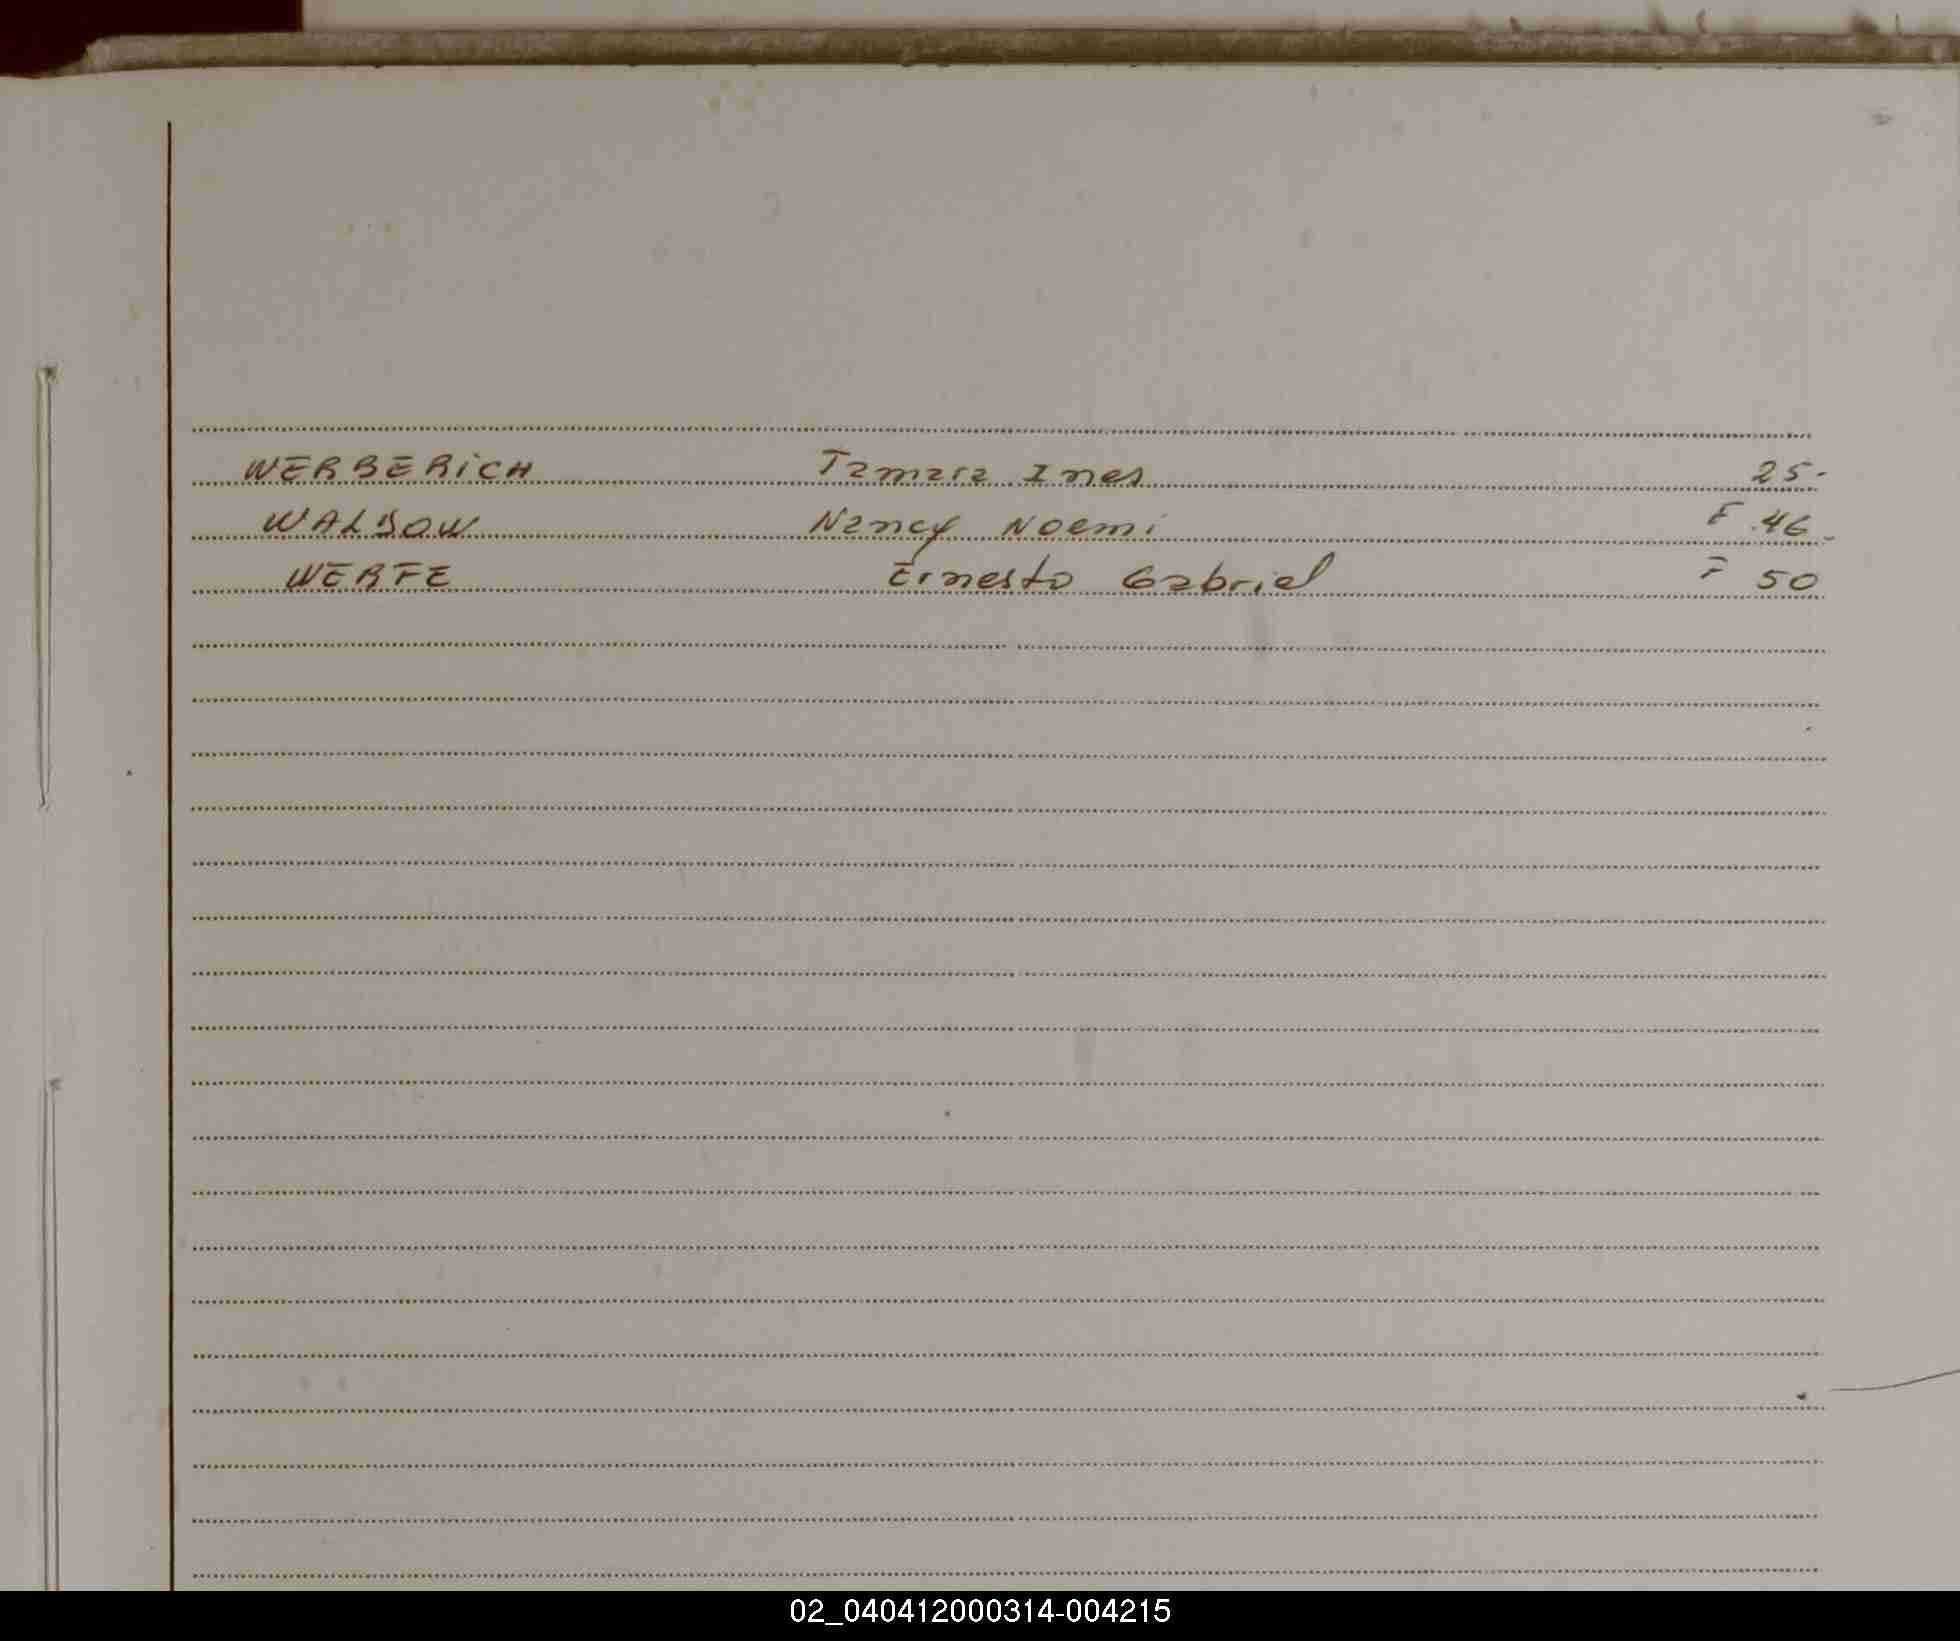 WERBERiCH Tamara Ines 25-
WALDOW Nancy Noemi F 46-
WERFE Ernesto Gabriel F 50
02_040412000314-004215